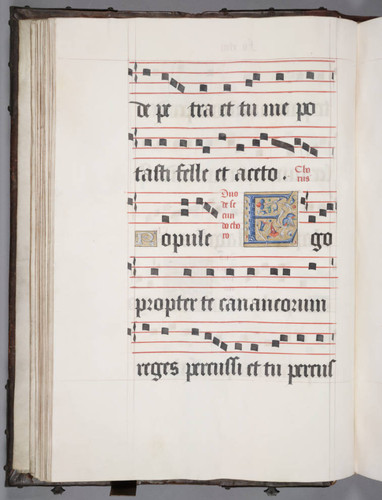 de pe tra et tu me po
tasti felle et aceto.
Cho
rus
Duo
de se
cun
do cho
ro
Popule Ego
propter te cananeorum
reges percussi et tu percus